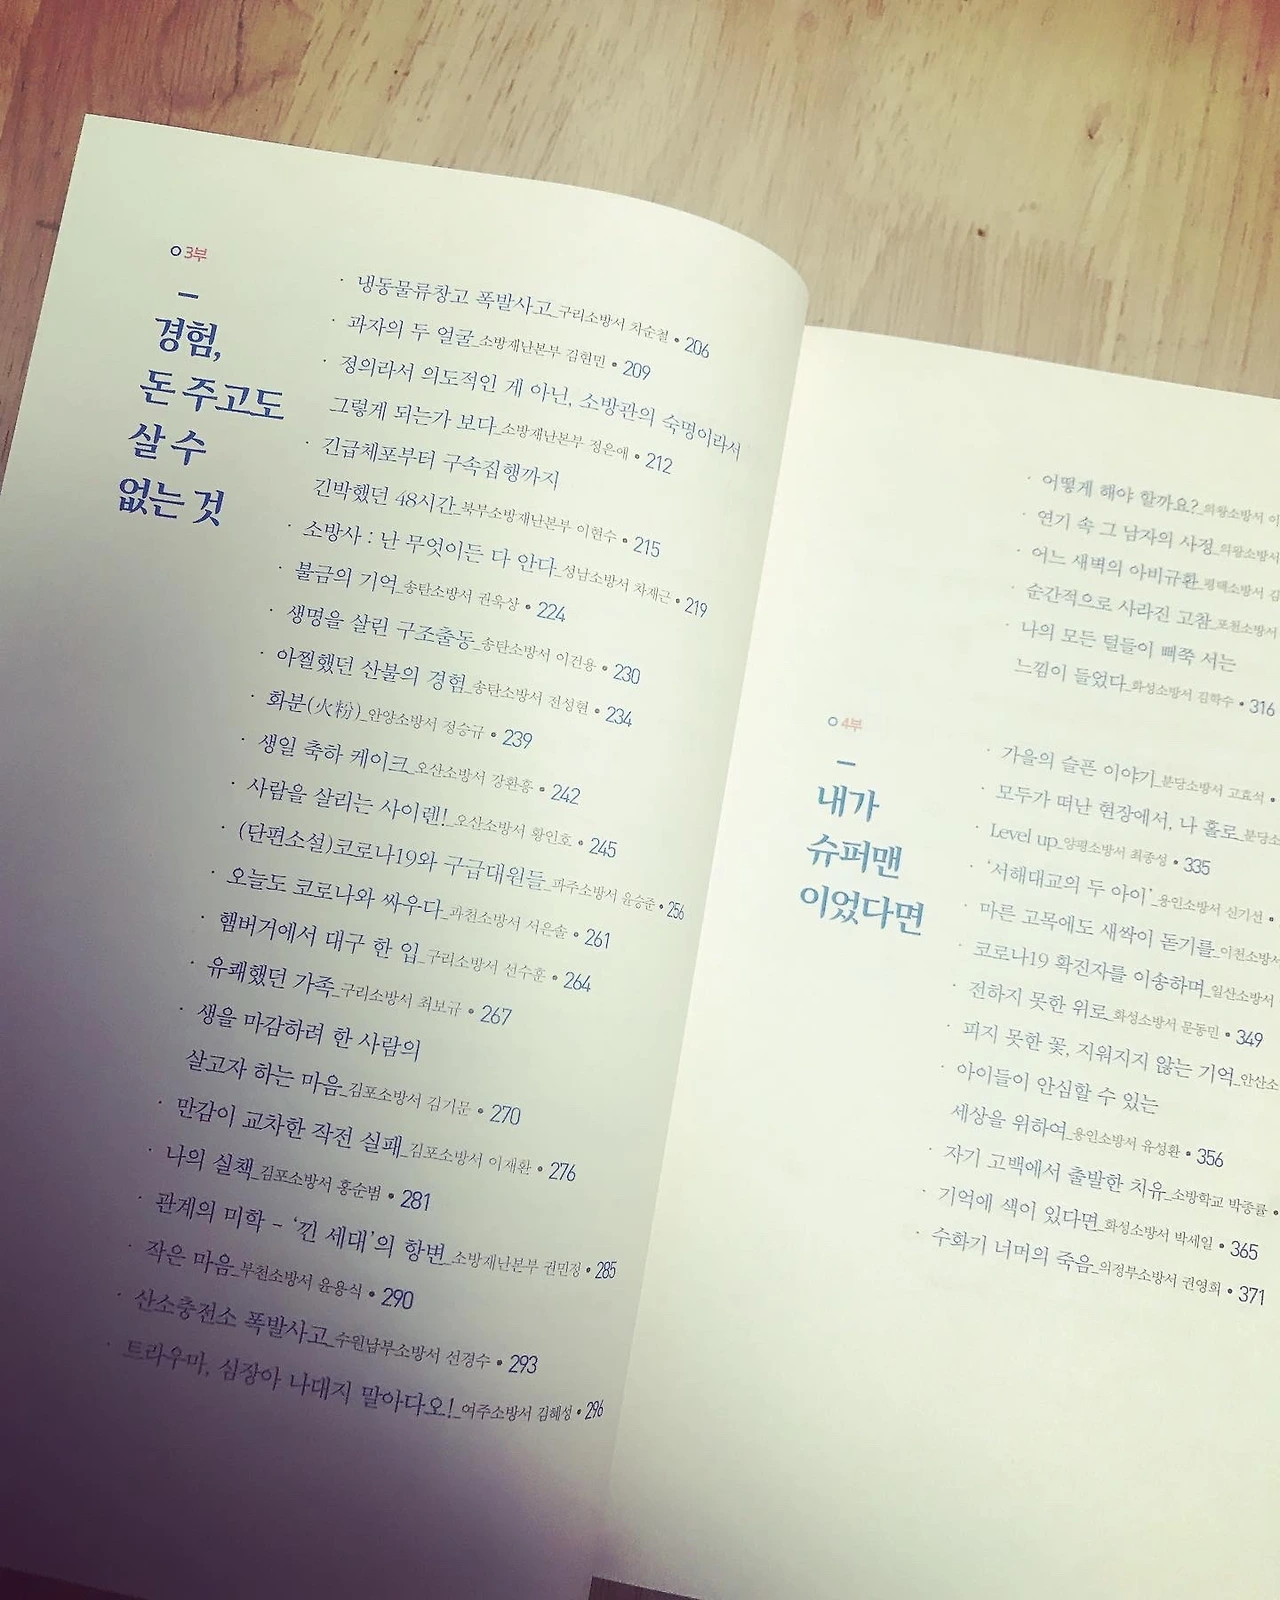 3부
경험,
돈 주고도
살 수
없는 것
· 냉동물류창고 폭발사고_구리소방서 차순철 • 206
· 과자의 두 얼굴_소방재난본부 김현민 • 209
· 정의라서 의도적인 게 아닌, 소방관의 숙명이라서
그렇게 되는가 보다_소방재난본부 정은애 • 212
· 긴급체포부터 구속집행까지
긴박했던 48시간_북부소방재난본부 이현수 • 215
· 소방사 : 난 무엇이든 다 안다_성남소방서 차재근 • 219
· 불금의 기억_송탄소방서 권욱상 • 224
· 생명을 살린 구조출동_송탄소방서 이건용 • 230
· 아찔했던 산불의 경험_송탄소방서 전성현 • 234
· 화분(火粉)_안양소방서 정승규 • 239
· 생일 축하 케이크_오산소방서 강환흥 • 242
· 사람을 살리는 사이렌!_오산소방서 황인호 • 245
· (단편소설)코로나19와 구급대원들_파주소방서 윤승준 • 256
· 오늘도 코로나와 싸우다_과천소방서 서은솔 • 261
· 햄버거에서 대구 한 입_구리소방서 선수훈 • 264
· 유쾌했던 가족_구리소방서 최보규 • 267
· 생을 마감하려 한 사람의
살고자 하는 마음_김포소방서 김기문 • 270
· 만감이 교차한 작전 실패_김포소방서 이재환 • 276
· 나의 실책_김포소방서 홍순범 • 281
· 관계의 미학 - ‘낀 세대’의 항변_소방재난본부 권민정 • 285
· 작은 마음_부천소방서 윤용식 • 290
· 산소충전소 폭발사고_수원남부소방서 선경수 • 293
· 트라우마, 심장아 나대지 말아다오!_여주소방서 김혜성 • 296
· 어떻게 해야 할까요?_의왕소방서
· 연기 속 그 남자의 사정_의왕소방서
· 어느 새벽의 아비규환_평택소방서 김
· 순간적으로 사라진 고참_포천소방서
· 나의 모든 털들이 삐쭉 서는
느낌이 들었다_화성소방서 김학수 • 316
4부
내가
슈퍼맨
이었다면
· 가을의 슬픈 이야기_분당소방서 고효석 •
· 모두가 떠난 현장에서, 나 홀로_분당소
· Level up_양평소방서 최종성 • 335
· ‘서해대교의 두 아이’_용인소방서 신기선 •
· 마른 고목에도 새싹이 돋기를_이천소방서
· 코로나19 확진자를 이송하며_일산소방서
· 전하지 못한 위로_화성소방서 문동민 • 349
· 피지 못한 꽃, 지워지지 않는 기억_안산소
· 아이들이 안심할 수 있는
세상을 위하여_용인소방서 유성환 • 356
· 자기 고백에서 출발한 치유_소방학교 박종률 •
· 기억에 색이 있다면_화성소방서 박세일 • 365
· 수화기 너머의 죽음_의정부소방서 권영희 • 371